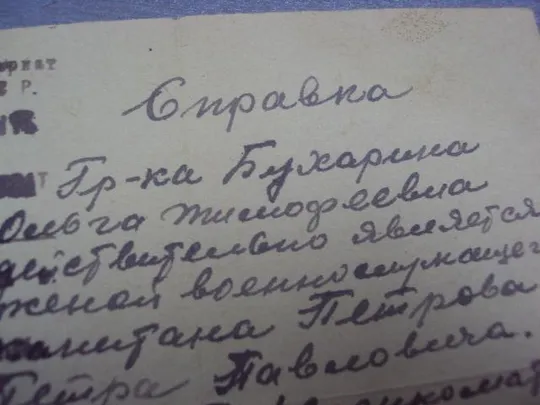 Справка
Гр-ка Бухарина
Ольга Тимофеевна
действительно является
женой военнослужащего
капитана Петрова
Петра Павловича.